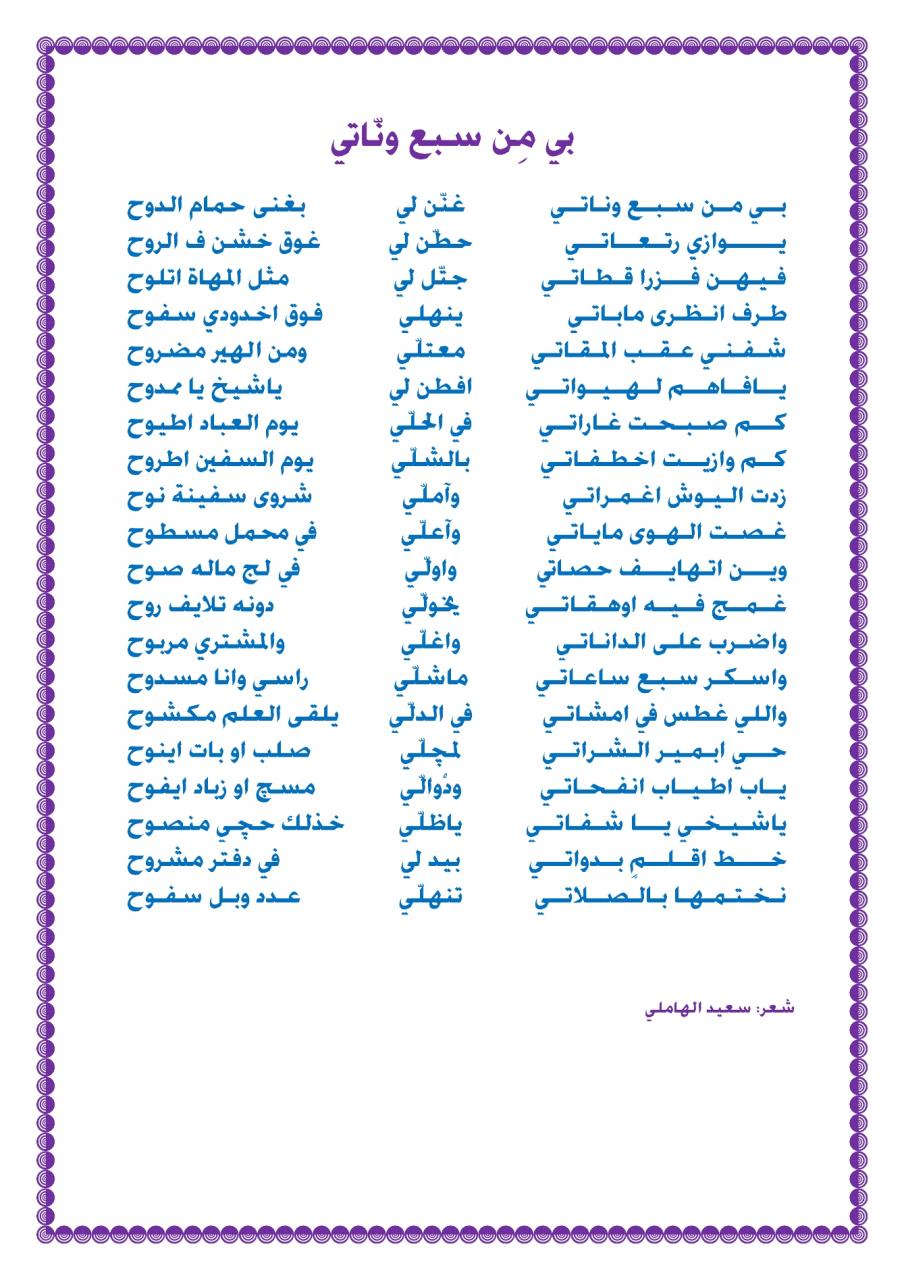 بي مِن سبع ونّاتي
بي من سبع وناتي غنّن لي بغنى حمام الدوح
يوازي رتعاتي حطّن لي غوق خشن ف الروح
فيهن فزرا قطاتي جتّل لي مثل المهاة اتلوح
طرف انظرى ماباتي ينهلي فوق اخدودي سفوح
شفني عقب المقاتي معتلّي ومن الهير مضروح
يافاهم لهيواتي افطن لي ياشيخ يا ممدوح
كم صبحت غاراتي في الحلّي يوم العباد اطيوح
كم وازيت اخطفاتي بالشلّي يوم السفين اطروح
زدت اليوش اغمراتي وآملّي شروى سفينة نوح
غصت الهوى ماياتي وآعلّي في محمل مسطوح
وين اتهايف حصاتي واولّي في لج ماله صوح
غمج فيه اوهقاتي يخولّي دونه تلايف روح
واضرب على الداناتي واغلّي والمشتري مربوح
واسكر سبع ساعاتي ماشلّي راسي وانا مسدوح
واللي غطس في امشاتي في الدلّي يلقى العلم مكشوح
حي ابمير الشراتي لمچلّي صلب او بات اينوح
ياب اطياب انفحاتي ودُوالّي مسچ او زباد ايفوح
ياشيخي يا شفاتي ياظلّي خذلك حچي منصوح
خط اقلمٍ بدواتي بيد لي في دفتر مشروح
نختمها بالصلاتي تنهلّي عدد وبل سفوح
شعر: سعيد الهاملي